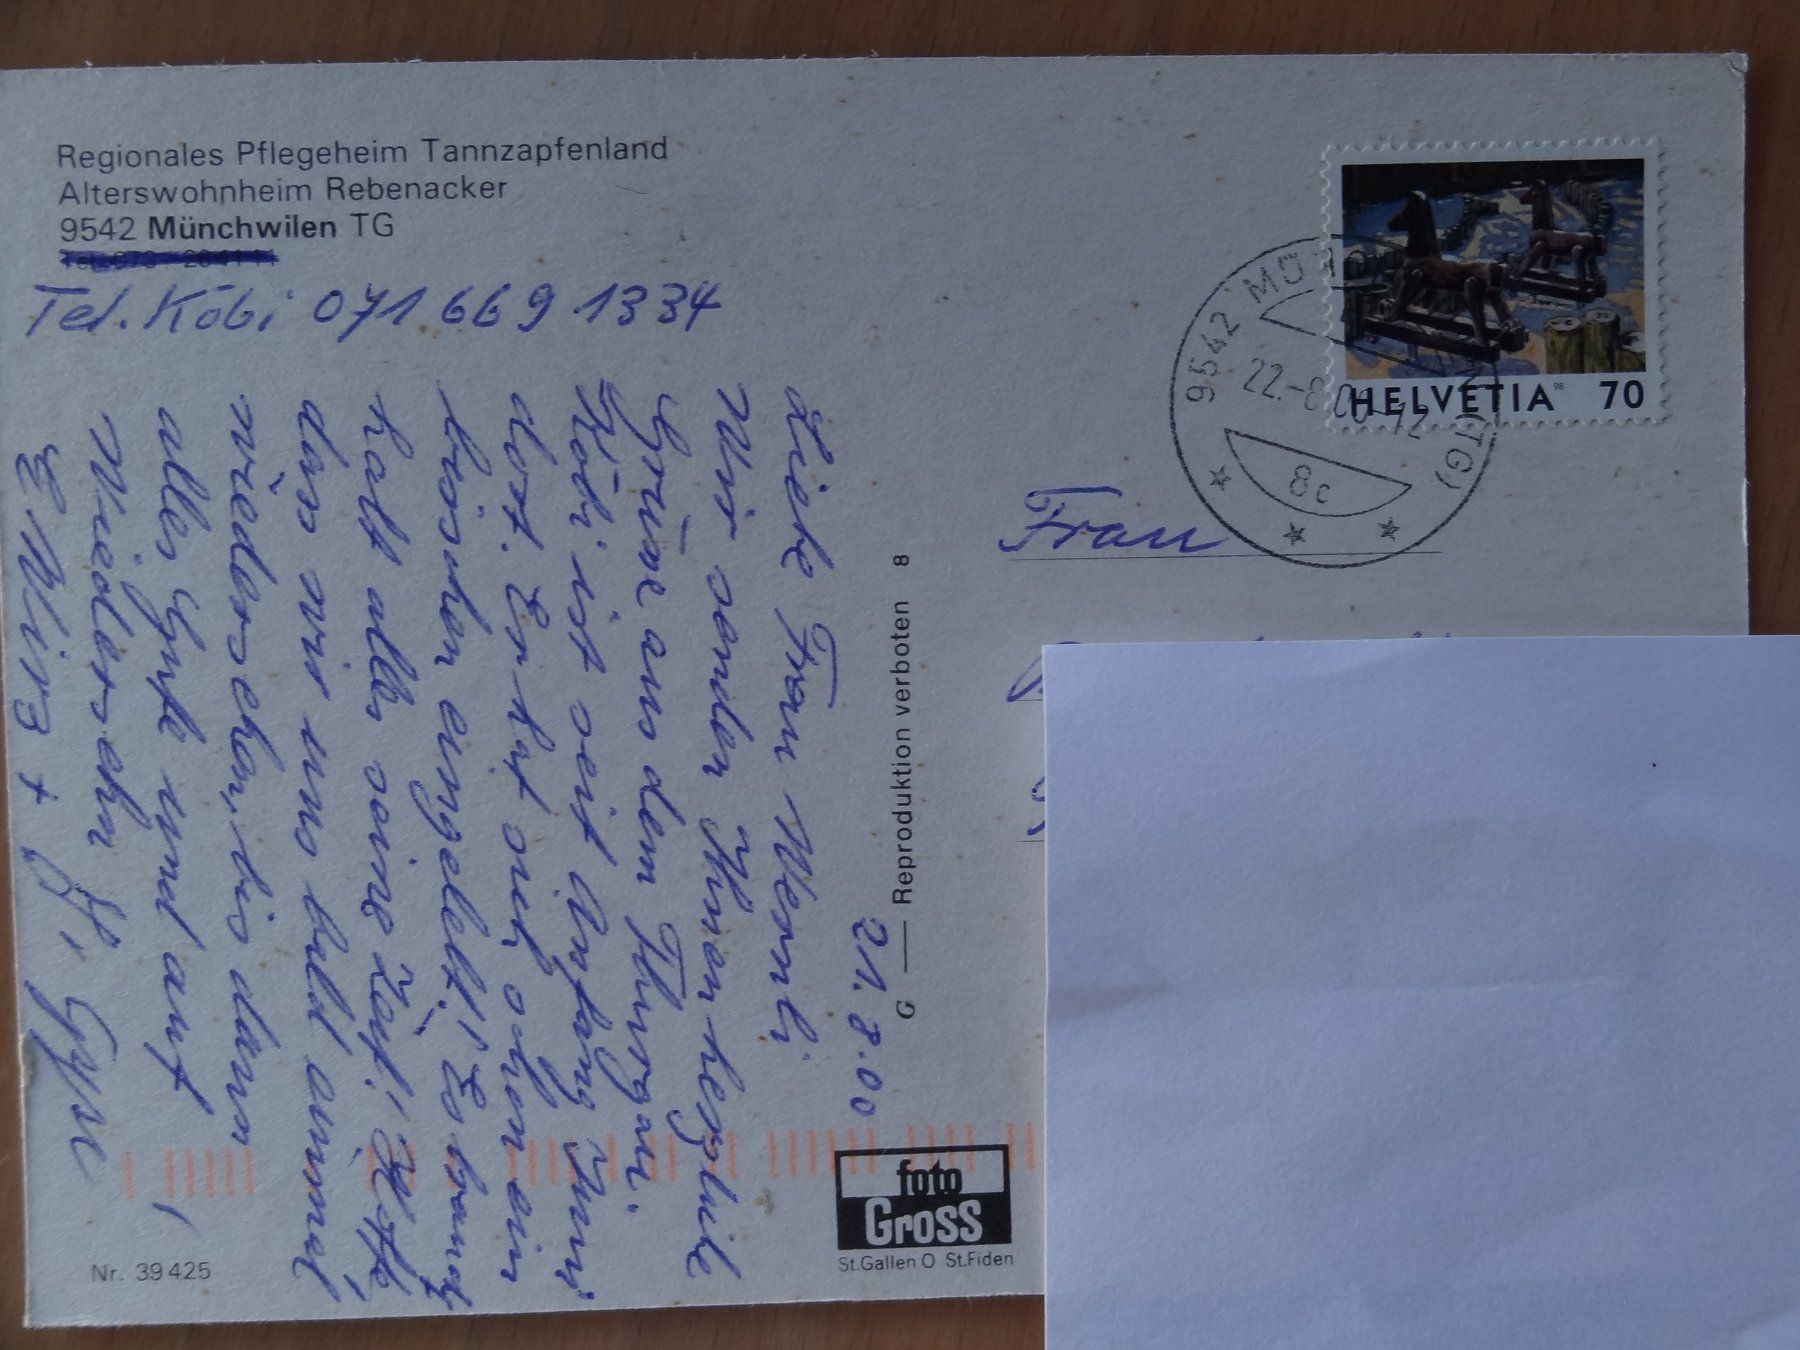 Regionales Pflegeheim Tannzapfenland
Alterswohnheim Rebenacker
9542 Münchwilen TG
Tel. Köbi 071 669 1334
21.8.00
Liebe Frau Wernli
Wir senden Ihnen herzliche
Grüsse aus dem Thurgau.
Köbi ist seit Anfang Juni
dort. Er hat sich schon ein
bisschen eingelebt! Es braucht
halt alles seine Zeit! Hoffe,
dass wir uns bald einmal
wiedersehen, bis dann
alles Gute und auf
Wiedersehn
G — Reproduktion verboten 8
HELVETIA 98 70
9542
22.-8
(TG)
8c
Frau
foto
Gross
St.Gallen O St.Fiden
Nr. 39 425